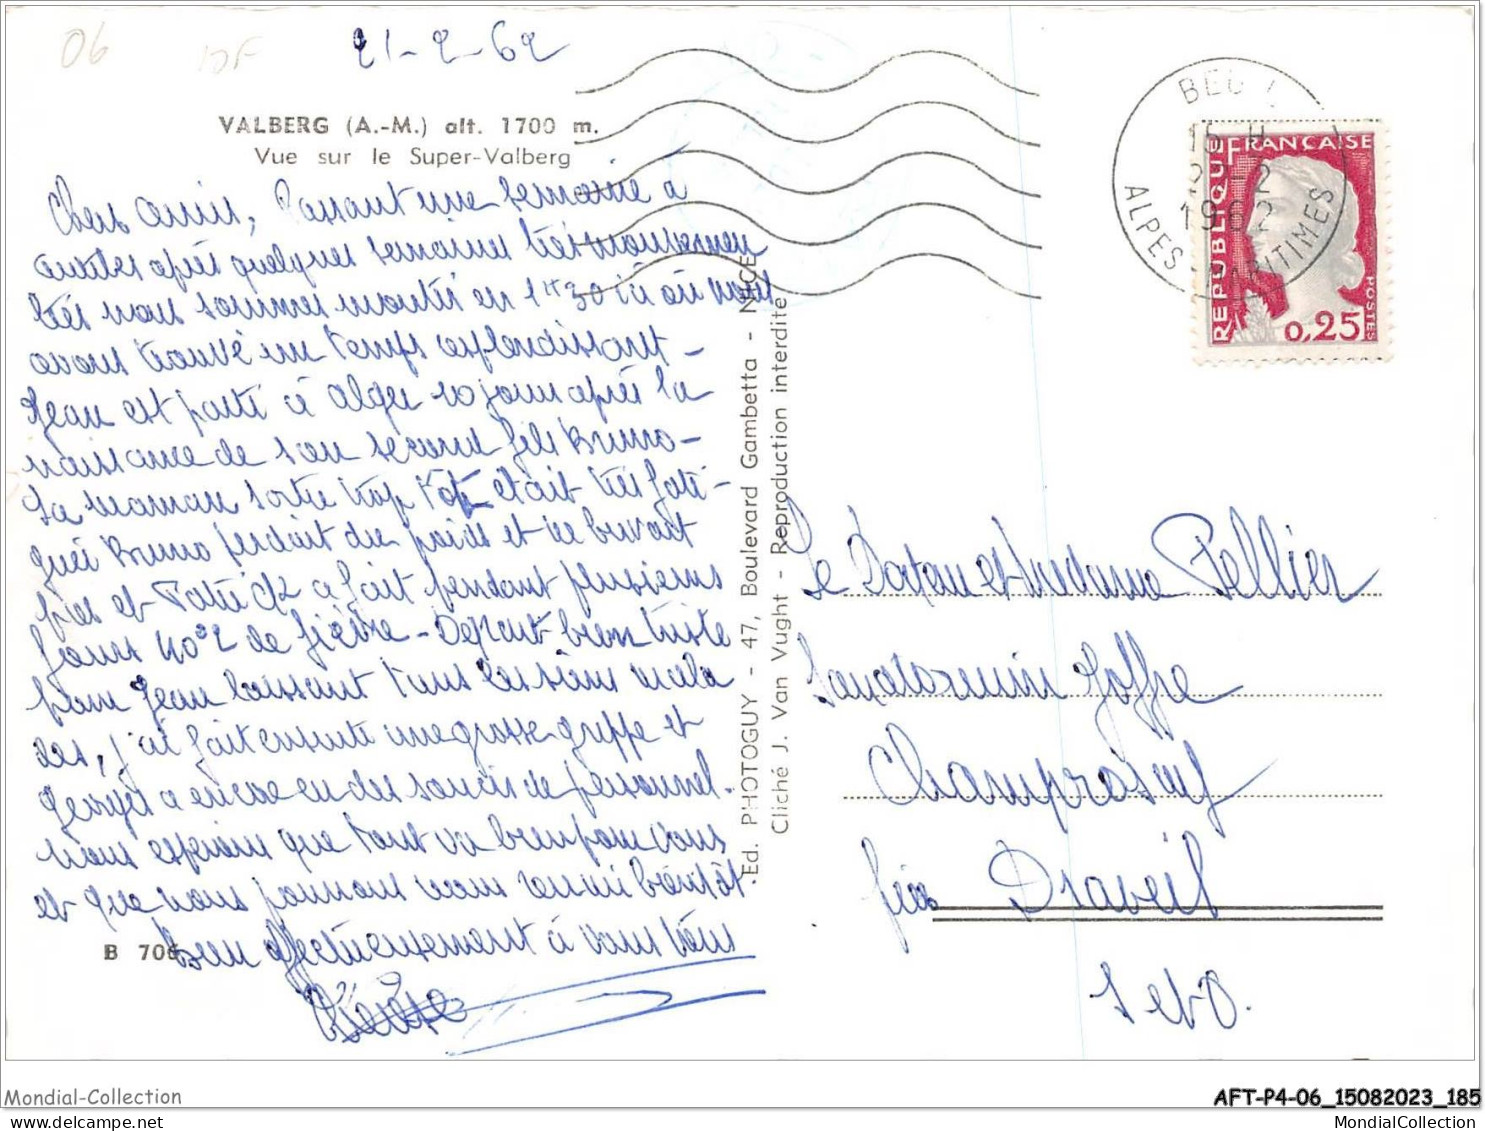 06
IDF
21-2-62
VALBERG (A.-M.) alt. 1700 m.
Vue sur le Super-Valberg
Chers amis, Passant une semaine à
après quelques semaines très mouvemen
tées nous sommes montés en 1H30 ici où nous
avons trouvé un temps resplendissant -
Jean est parti à Alger 10 jours après la
naissance de son second fils Bruno -
La maman sortie trop tôt était très fati-
guée Bruno perdait du poids et ne buvait
pas et Patrick a fait pendant plusieurs
jours 40°2 de fièvre - Départ bien triste
pour Jean laissant tous les siens mala
des, j'ai fait ensuite une grosse grippe et
Georges a encore eu des soucis de personnel.
Nous espérons que tout va bien pour vous
et que nous pourrons vous revoir bientôt.
Bien affectueusement à vous tous
B 706
Ed. PHOTOGUY - 47, Boulevard Gambetta - NICE
Cliché J. Van Vught - Reproduction interdite
BEU
15 H
2
1962
ALPES MARITIMES
REPUBLIQUE FRANÇAISE
POSTES
0,25
Le Docteur et Madame Pellier
Sanatorium Joffre
Champrosay
par Draveil
S et O.
Mondial-Collection
AFT-P4-06_15082023_185
www.delcampe.net
MondialCollection